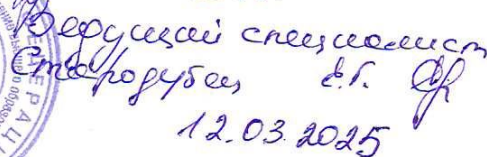 Ведущий специалист
Стародубец Е.Г.
12.03.2025